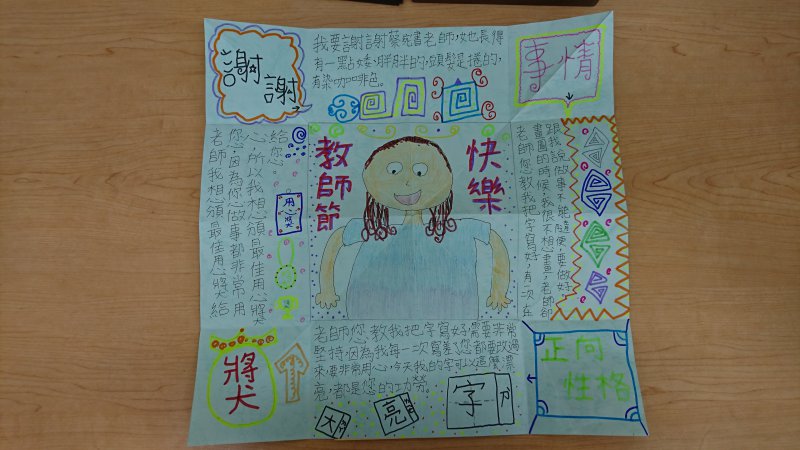 謝謝
我要謝謝蔡宛書老師，她也長得
有一點矮，胖胖的，頭髮是捲的，
有染咖啡色。
事情
教師節
快樂
老師您教我把字寫好，有一次在
畫圖的時候，我很不想畫，老師卻
跟我說做事不能隨便，要做好。
老師我想頒最佳用心獎給
您，因為你做事都非常用
心，所以我想頒最佳用心獎
給您。
用心獎
老師您教我把字寫好，需要非常
堅持，因為我每一次寫差了您都要改過
來，要非常用心，今天我的字可以這麼漂
亮，都是您的功勞。
獎
正向
性格
大
亮
字